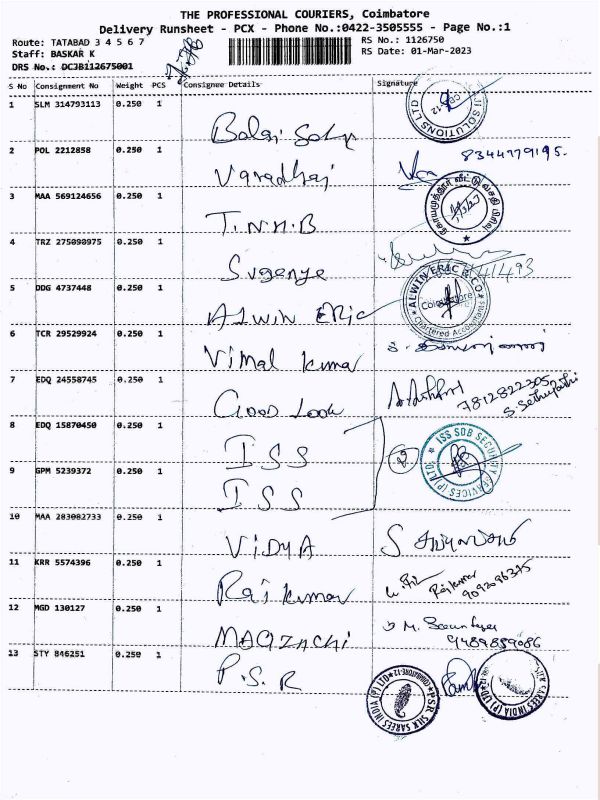 THE PROFESSIONAL COURIERS, Coimbatore
Delivery Runsheet - PCX - Phone No.:0422-3505555 - Page No.:1
Route: TATABAD 3 4 5 6 7 RS No.: 1126750
Staff: BASKAR K RS Date: 01-Mar-2023
DRS No.: DC3B112675001
S No Consignment No Weight PCS Consignee Details Signature
1 SLM 314793113 0.250 1
2 POL 2212858 0.250 1 Varadhaj 8344779195.
3 MAA 569124656 0.250 1 T.N.H.B
4 TRZ 275090975 0.250 1 Suganye
5 DDG 4737448 0.250 1 Alwin Eric ALWIN ERIC & CO. Coimbatore Chartered Accountants
6 TCR 29529924 0.250 1 Vimal Kumar
7 EDQ 24558745 0.250 1 Good Look 7812822305 S. Sethupathi
8 EDQ 15870450 0.250 1 ISS 2 ISS SDB SECURITY SERVICES (P) LTD.
9 GPM 5239372 0.250 1 ISS
10 MAA 283082733 0.250 1 ViDYA
11 KRR 5574396 0.250 1 Raj Kumar Rajkumar
12 MGD 130127 0.250 1 9489859086
13 STY 846251 0.250 1 P.S.R P.S.R SILK SAREES INDIA (P) LTD COIMBATORE-12 SILK SAREES INDIA (P) LTD